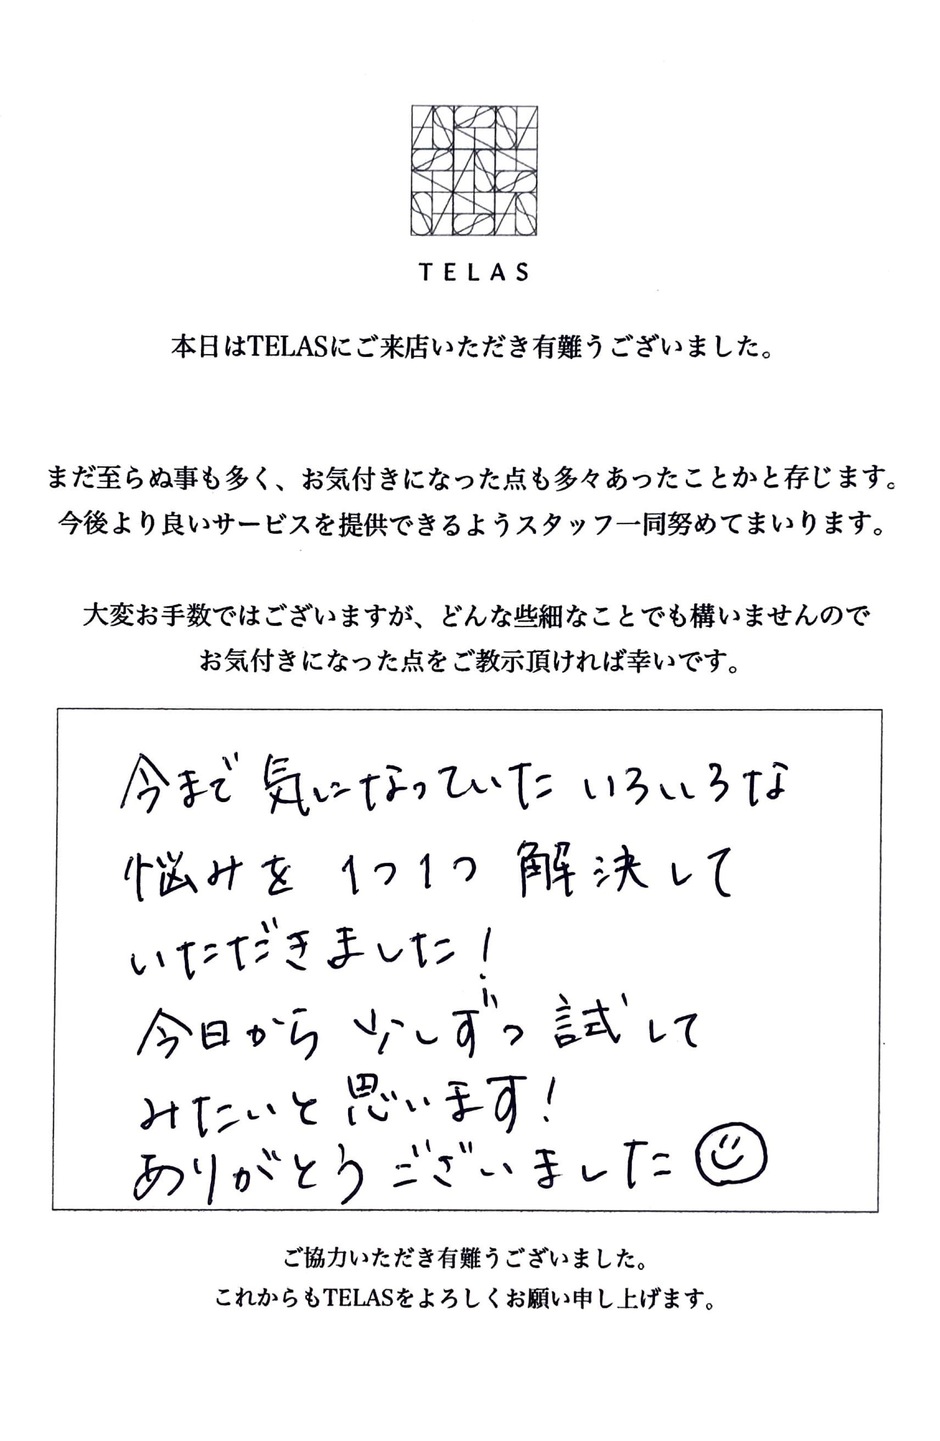 TELAS
本日はTELASにご来店いただき有難うございました。
まだ至らぬ事も多く、お気付きになった点も多々あったことかと存じます。
今後より良いサービスを提供できるようスタッフ一同努めてまいります。
大変お手数ではございますが、どんな些細なことでも構いませんので
お気付きになった点をご教示頂ければ幸いです。
今まで気になっていたいろいろな
悩みを1つ1つ解決して
いただきました!
今日から少しずつ試して
みたいと思います!
ありがとうございました
ご協力いただき有難うございました。
これからもTELASをよろしくお願い申し上げます。